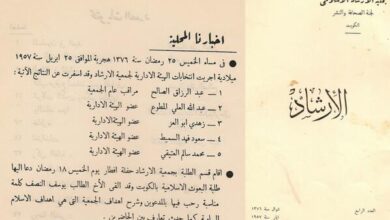 جمعية الارشاد الاسلامي
لجنة الصحافة والنشر
الكويت
الارشاد
العدد الرابع
شوال سنة ١٣٧٦
سنة ١٩٥٧
اخبارنا المحلية
في مساء الخميس ٢٥ رمضان سنة ١٣٧٦ هجرية الموافق ٢٥ ابريل سنة ١٩٥٧
ميلادية اجريت انتخابات الهيئة الادارية لجمعية الارشاد وقد اسفرت عن النتائج الآتية :
١ – عبد الرزاق الصالح مراقب عام الجمعية
٢ – عبد الله العلي المطوع عضو الهيئة الادارية
٣ – زهدي ابو العز عضو الهيئة الادارية
٤ – سعود فهد السميط عضو الهيئة الادارية
٥ – محمد سالم العتيقي عضو الهيئة الادارية
اقام قسم الطلبة بجمعية الارشاد حفلة افطار يوم الخميس ١٨ رمضان دعا اليها
طلبة البعوث الاسلامية بالكويت وقد القى الأخ الطالب يوسف النصف كلمة
مناسبة رحب فيها بالمدعوين وشرح اهداف الجمعية التي هي اهداف الاسلام
حدث تعارف بين الحاضرين .